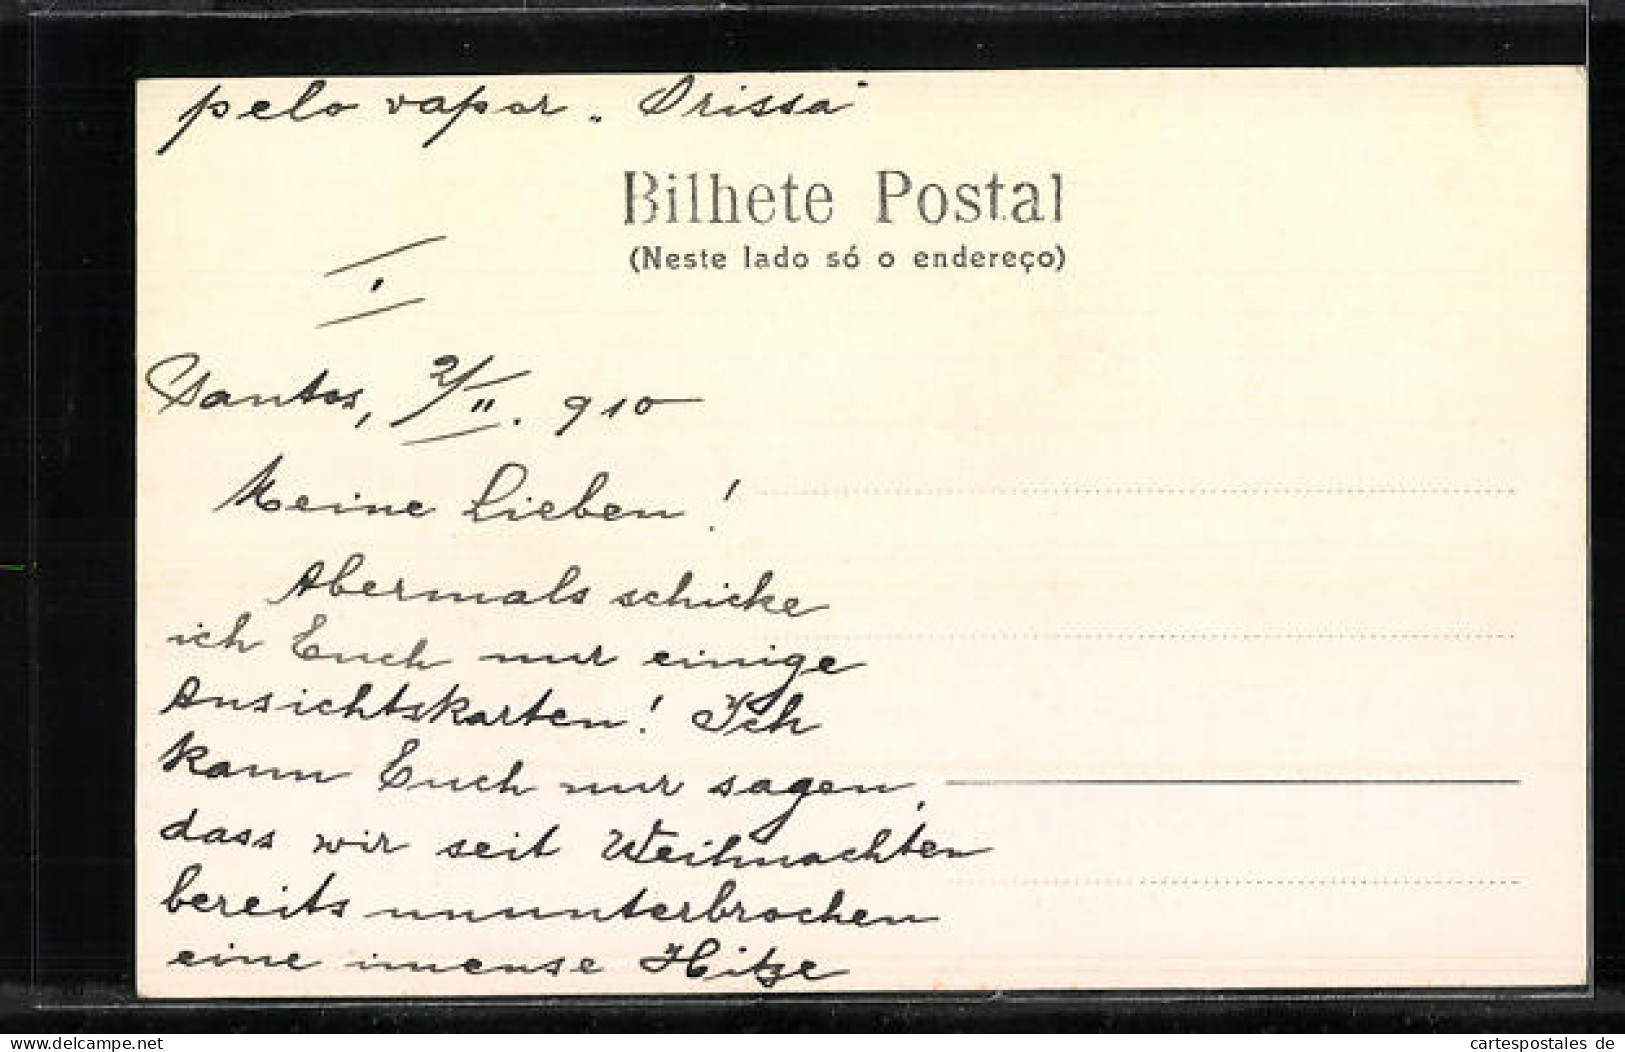 pelo vapor „Orissa"
Bilhete Postal
(Neste lado só o endereço)
I.
Santos, 2/II. 910
Meine Lieben!
Abermals schicke
ich Euch nur einige
Ansichtskarten! Ich
kann Euch nur sagen,
dass wir seit Weihnachten
bereits ununterbrochen
eine imense Hitze
www.delcampe.net
cartespostales de